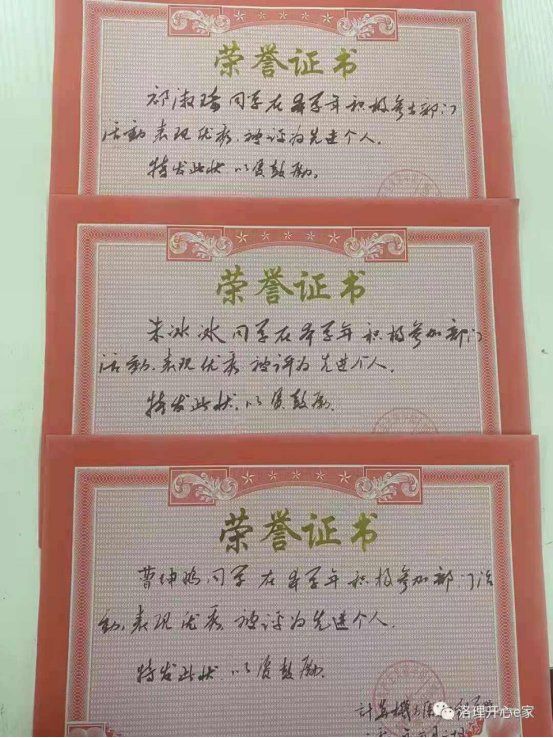 荣誉证书
祁淑琦同学在本学年积极参与部门
活动表现优秀,被评为先进个人。
特发此状,以资鼓励。
荣誉证书
朱冰冰同学在本学年积极参加部门
活动,表现优秀,被评为先进个人.
特发此状,以资鼓励.
荣誉证书
曹坤同学在本学年积极参加部门活
动,表现优秀,被评为先进个人.
特发此状,以资鼓励.
计算機
洛理开心e家